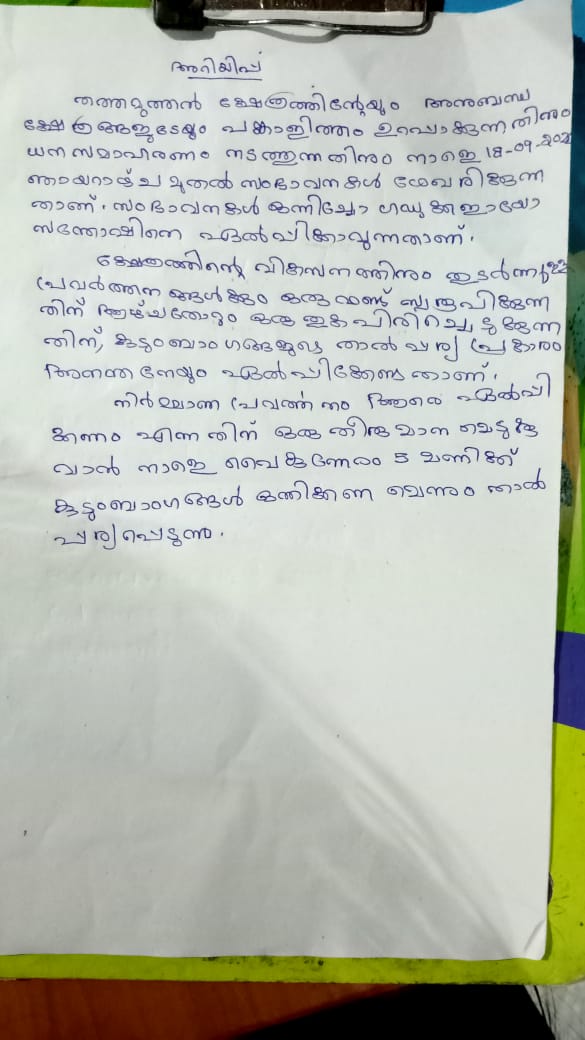 അറിയിപ്പ്
തത്തമുത്തൻ ക്ഷേത്രത്തിന്റേയും അനുബന്ധ
ക്ഷേത്രങ്ങളുടേയും പങ്കാളിത്തം ഉറപ്പാക്കുന്നതിനും
ധനസമാഹരണം നടത്തുന്നതിനും നാളെ 18-09-2022
ഞായറാഴ്ച മുതൽ സംഭാവനകൾ ശേഖരിക്കുന്ന
താണ്. സംഭാവനകൾ ഒന്നിച്ചോ ഗഡുക്കളായോ
സന്തോഷിനെ ഏൽപ്പിക്കാവുന്നതാണ്.
ക്ഷേത്രത്തിന്റെ വികസനത്തിനും തുടർന്നുള്ള
പ്രവർത്തനങ്ങൾക്കും ഒരു ഫണ്ട് സ്വരൂപിക്കുന്ന
തിന് ആഴ്ചതോറും ഒരു തുക പിരിച്ചെടുക്കുന്ന
തിന്, കുടുംബാംഗങ്ങളുടെ താൽപര്യ പ്രകാരം
അനന്തനേയും ഏൽപ്പിക്കേണ്ടതാണ്.
നിർമ്മാണ പ്രവർത്തനം ആരെ ഏൽപ്പി
ക്കണം എന്നതിന് ഒരു തീരുമാനമെടുക്കു
വാൻ നാളെ വൈകുന്നേരം 5 മണിക്ക്
കുടുംബാംഗങ്ങൾ ഒത്തിക്കണമെന്നും താൽ
പര്യപ്പെടുന്നു.